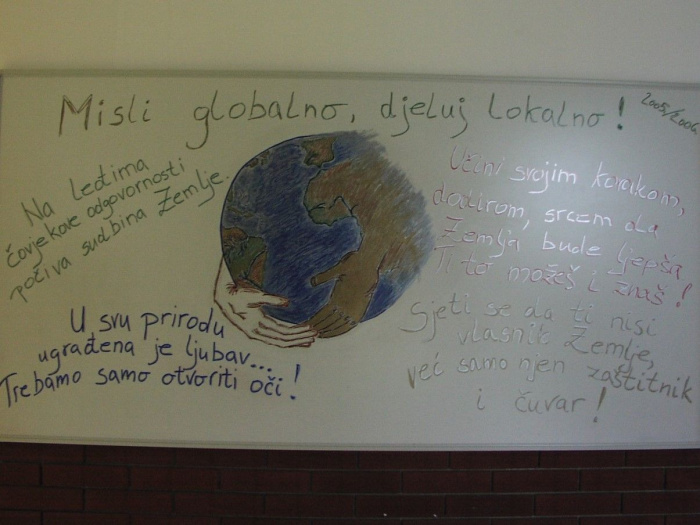 Misli globalno, djeluj lokalno!
2005/2006
Na leđima
čovjekove odgovornosti
počiva sudbina Zemlje.
U svu prirodu
ugrađena je ljubav...
Trebamo samo otvoriti oči!
Učini svojim korakom,
dodirom, srcem da
Zemlja bude ljepša
Ti to možeš i znaš!
Sjeti se da ti nisi
vlasnik Zemlje,
već samo njen zaštitnik
i čuvar!